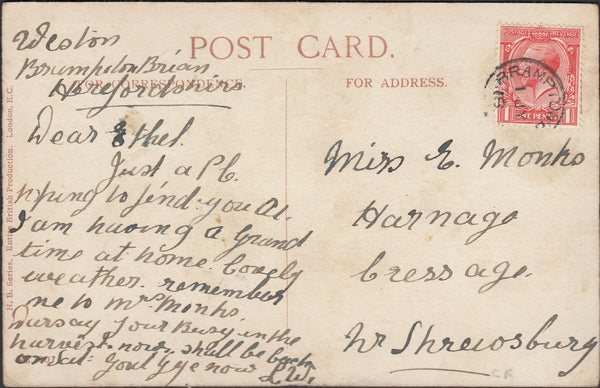 Weston
Brampton Brian
Herefordshire
POST CARD.
FOR CORRESPONDENCE.
FOR ADDRESS.
H. B. Series. Entire British Production. London, E.C.
Dear Ethel.
Just a P.C.
hping to find you A1.
I am having a grand
time at home. lovely
weather. remember
me to Mrs Monks.
Darsay your Busy in the
harvest now. shall be back
on Sat. Goul Gye now L.W.
POSTAGE REVENUE
ONE PENNY
BRAMPTON
Miss E. Monks
Harnage
Cressage.
Nr Shrewsbury